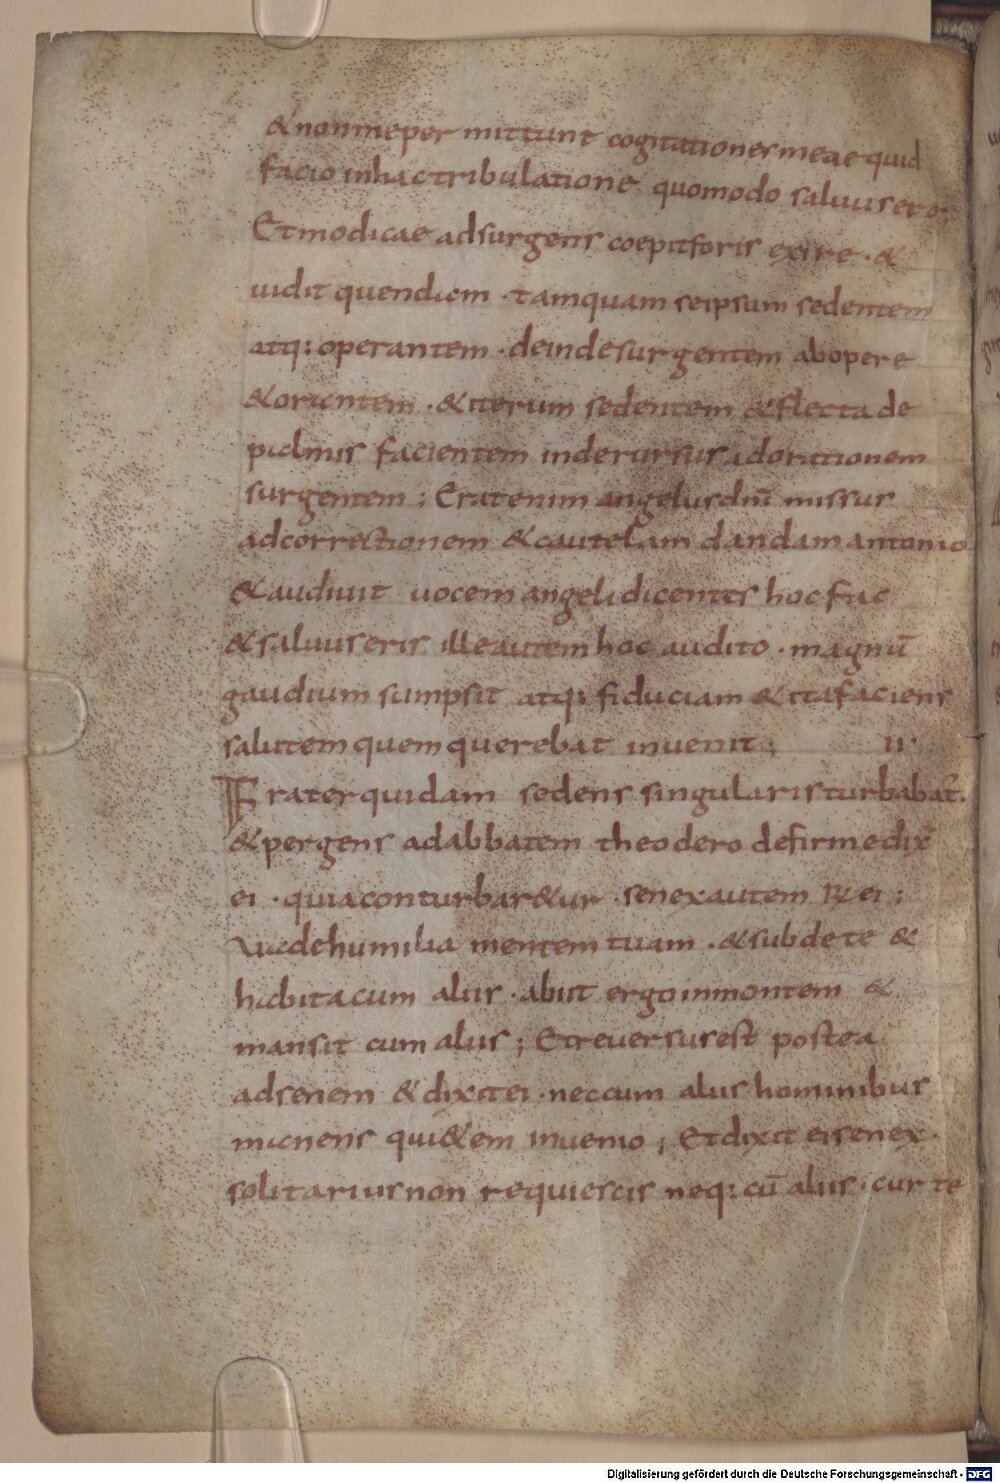 & non me permittunt cogitationes meae quid
facio in hac tribulatione quomodo saluus ero;
Et modicae adsurgens coepit foris exire · &
uidit quendam · tamquam seipsum sedentem
atq: operantem · deinde surgentem ab opere
& orantem · & iterum sedentem & flecta de
palmis facientem inde rursus ad orationem
surgentem ; Erat enim angelus dni missus
ad correctionem & cautelam dandam antonio
& audiuit uocem angeli dicentis hoc fac
& saluus eris ille autem hoc audito · magnū
gaudium sumpsit atq: fiduciam & ita faciens
salutem quem querebat inuenit ; II·
Frater quidam sedens singularis turbabat.
& pergens ad abbatem theodero de firme dix̄
ei · quia conturbar&ur · senex autem R̄ ei ;
Uade humilia mentem tuam · & subde te &
habita cum aliis · abiit ergo in montem &
mansit cum aliis ; Et reuersus est postea
ad senem & dixit ei · nec cum aliis hominibus
manens qui&em inuenio ; Et dixit ei senex ·
solitarius non requiescis neq: cū aliis · cur te
Digitalisierung gefördert durch die Deutsche Forschungsgemeinschaft - DFG